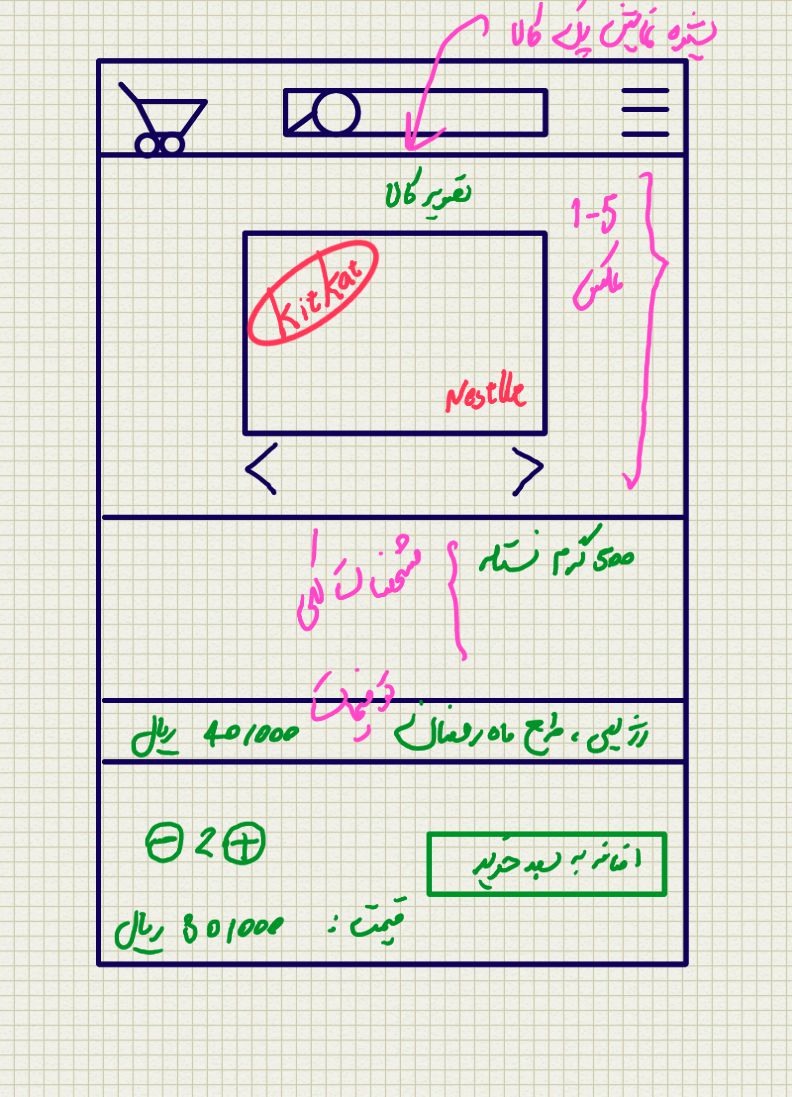 شیوه نمایش برای کالا
تصویر کالا
1-5
عکس
KitKat
Nestlle
500 گرم نستله
مشخصات کلی
توضیحات
رژیمی، طرح ماه رمضان
40/000 ریال
- 2 +
افزافه به سبد خرید
قیمت : 80/000 ریال